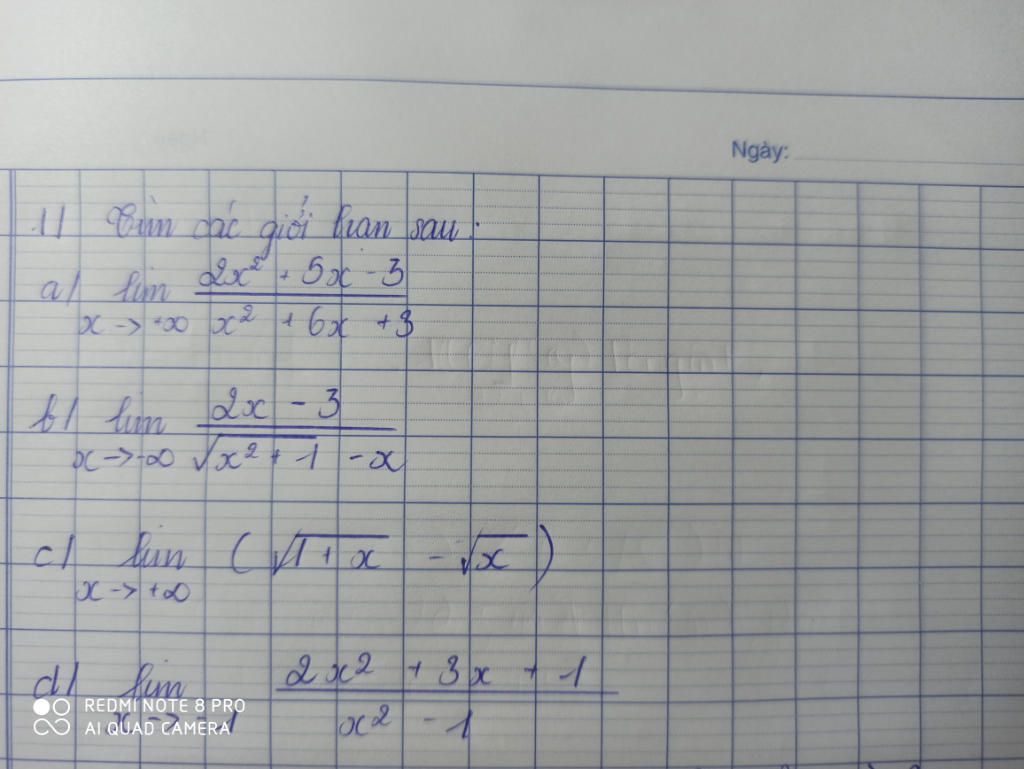 Ngày:
1) Tìm các giới hạn sau:
a) lim 2x² + 5x - 3
x -> +∞ x² + 6x + 3
b) lim 2x - 3
x -> -∞ √x² + 1 - x
c) lim ( √1 + x - √x )
x -> +∞
d) lim 2x² + 3x + 1
x -> -1 x² - 1
REDMI NOTE 8 PRO
AI QUAD CAMERA